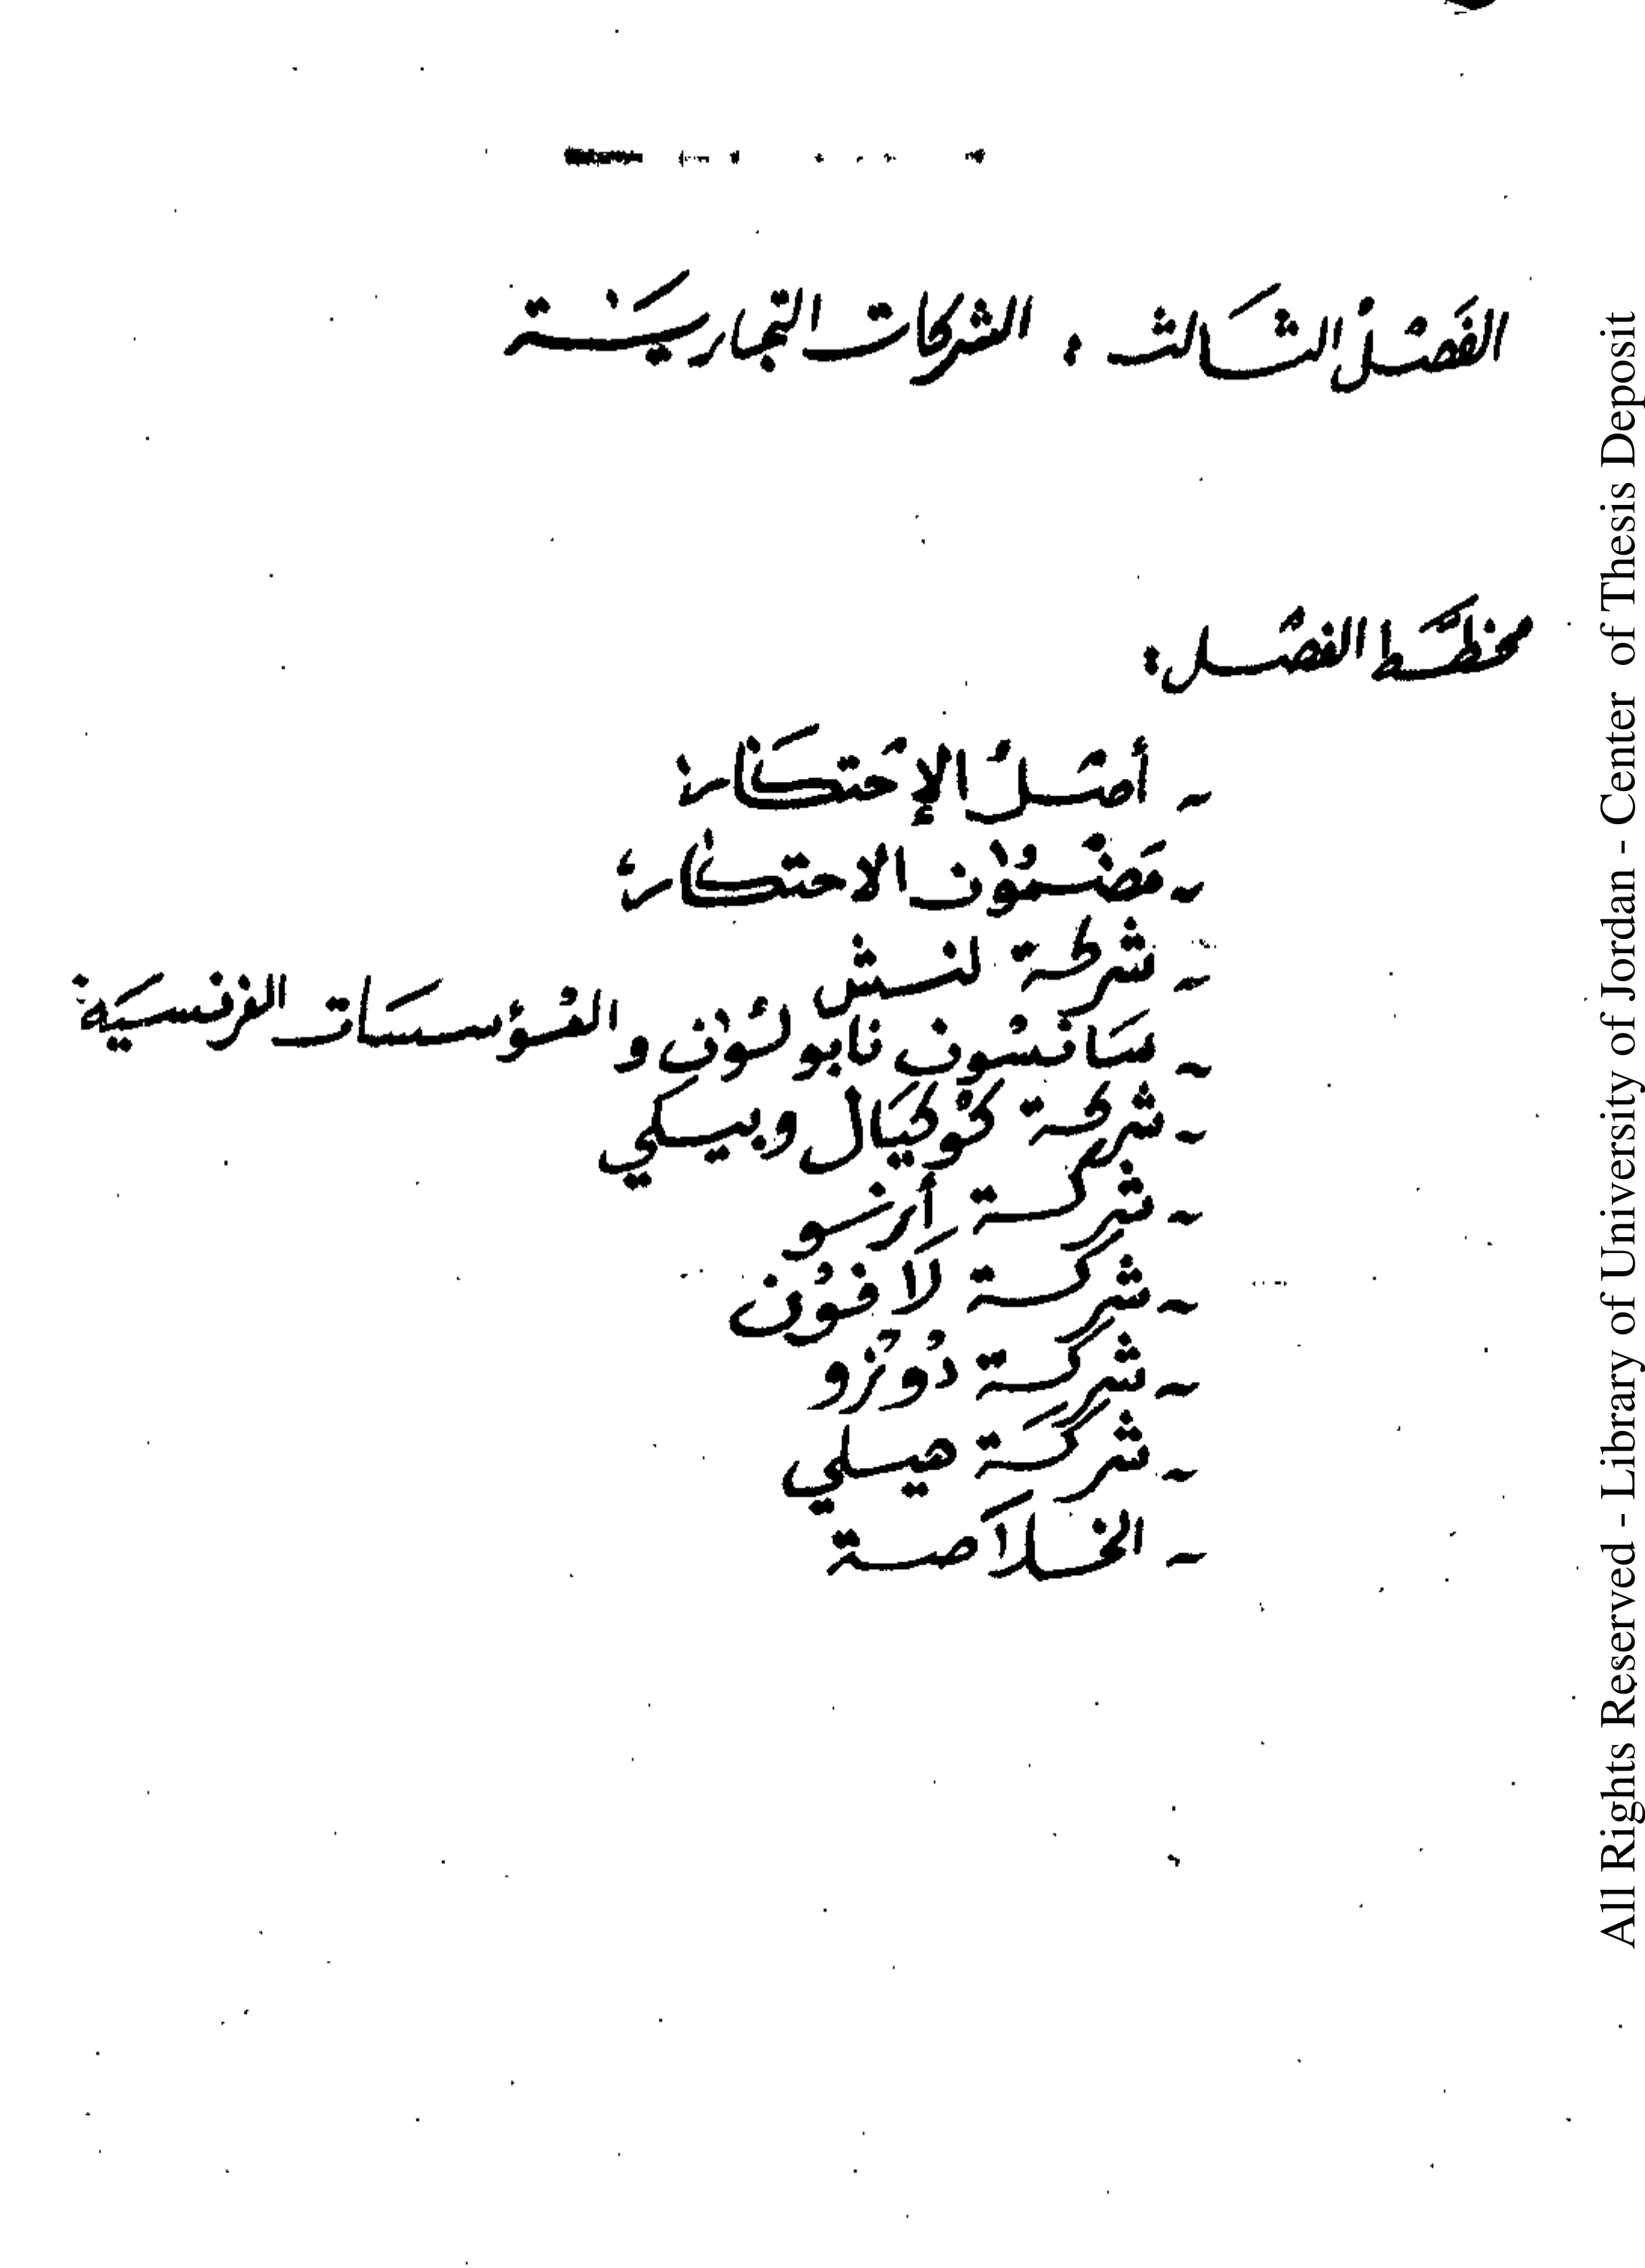 الفصل الثالث : الشركات التجارية
مخطط الفصل :
- أصل الإحتكار
- مضمون الاحتكار
- شركة لنش
- سانسون نابولئون و المؤسسات الفرنسية
- شركة كوكيال وبيسكي
- شركة أرنو
- شركة لافون
- شركة دوزو
- شركة هيلي
- الخلاصة
All Rights Reserved - Library of University of Jordan - Center of Thesis Deposit